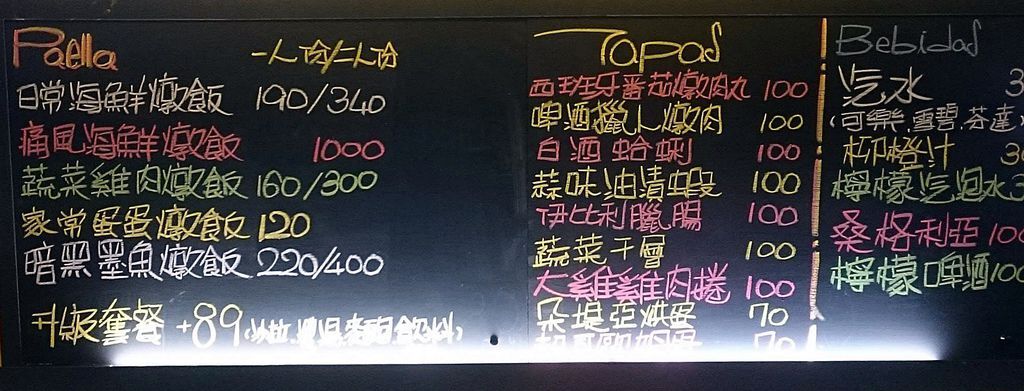 Paella 一人份/二人份
日常海鮮燉飯 190/340
痛風海鮮燉飯 1000
蔬菜雞肉燉飯 160/300
家常蛋蛋燉飯 120
暗黑墨魚燉飯 220/400
升級套餐 +89
Tapas
西班牙番茄燉肉丸 100
啤酒獵人燉肉 100
白酒蛤蜊 100
蒜味油漬蝦 100
伊比利臘腸 100
蔬菜千層 100
大雞雞肉捲 100
朵提亞烘蛋 70
70
Bebidas
汽水
(可樂.雪碧.芬達)
柳橙汁
檸檬汽泡水
桑格利亞 100
檸檬啤酒 100